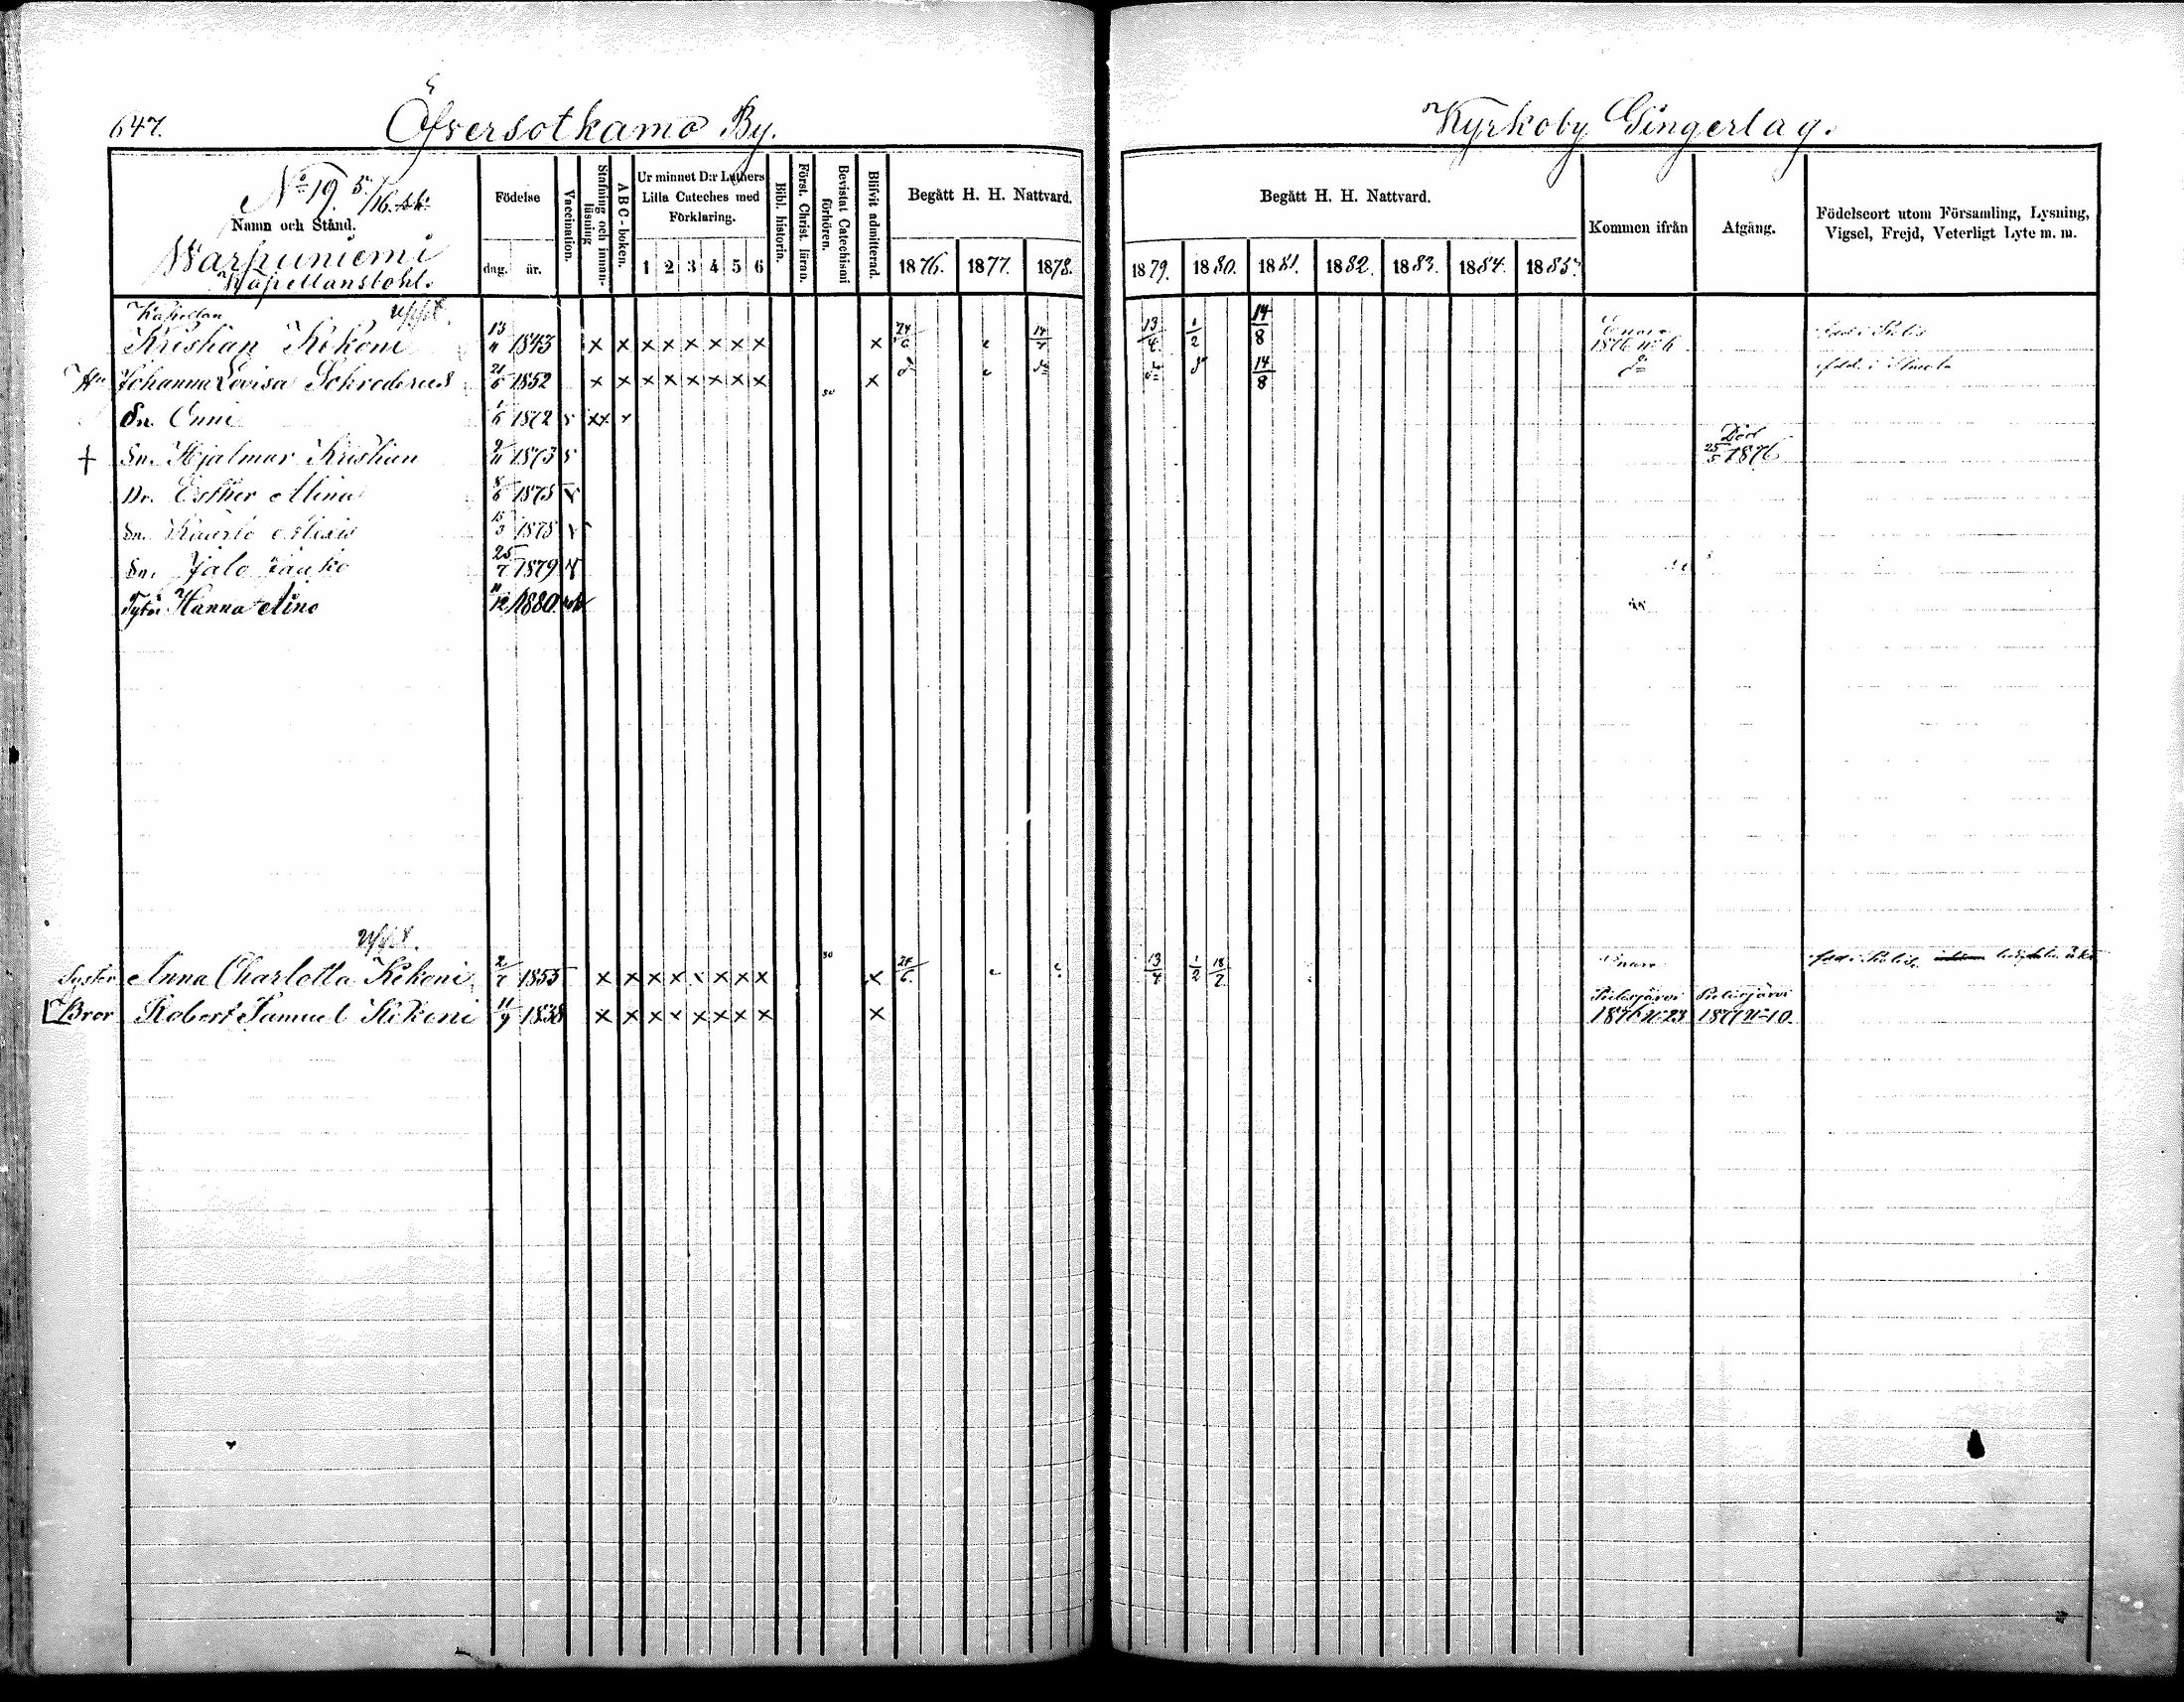 647. Öfversotkamo By. Kyrkoby Gingerlag.
No 19. 5/16. Födelse Vaccination. Stafning och innan-läsning A B C-boken. Ur minnet D:r Luthers Lilla Cateches med Förklaring. Bibl. historia. Först. Christ. läran. Bevistat Catechismi förhören. Blifvit admitterad. Begått H. H. Nattvard. Begått H. H. Nattvard. Kommen ifrån Afgång. Födelseort utom Församling, Lysning, Vigsel, Frejd, Veterligt Lyte m. m.
Namn och Stånd.
Warpuniemi dag. år. 1 2 3 4 5 6 1876. 1877. 1878. 1879. 1880. 1881. 1882. 1883. 1884. 1885.
Kapellansbohl.
Kapellan
Kristian Kekoni 13/11 1843 × × × × × × × × × 24/6 14/4 13/4 1/2 14/8 Enare 1876 No 6
Johanna Lovisa Schroderus 21/6 1852 × × × × × × × × × 14/8
Dr. Enni 1/6 1872 ××
† Sn. Hjalmar Kristian 9/11 1873 Död 25/5 1876
Dr. Esther Alina 8/6 1875 v
Sn. Kaarlo Alexis 15/3 1878 v
Sn. Jalo 25/7 1879 v
Tytär Hanna Aino 11/12 1880 rok
Syster Anna Charlotta Kekoni 2/7 1855 × × × × × × × × × 24/6 13/4 1/2 18/7 Enare
Bror Robert Samuel Kekoni 11/9 1838 × × × × × × × × × Pielisjärvi 1876 No 23 Pielisjärvi 1877 No 10.